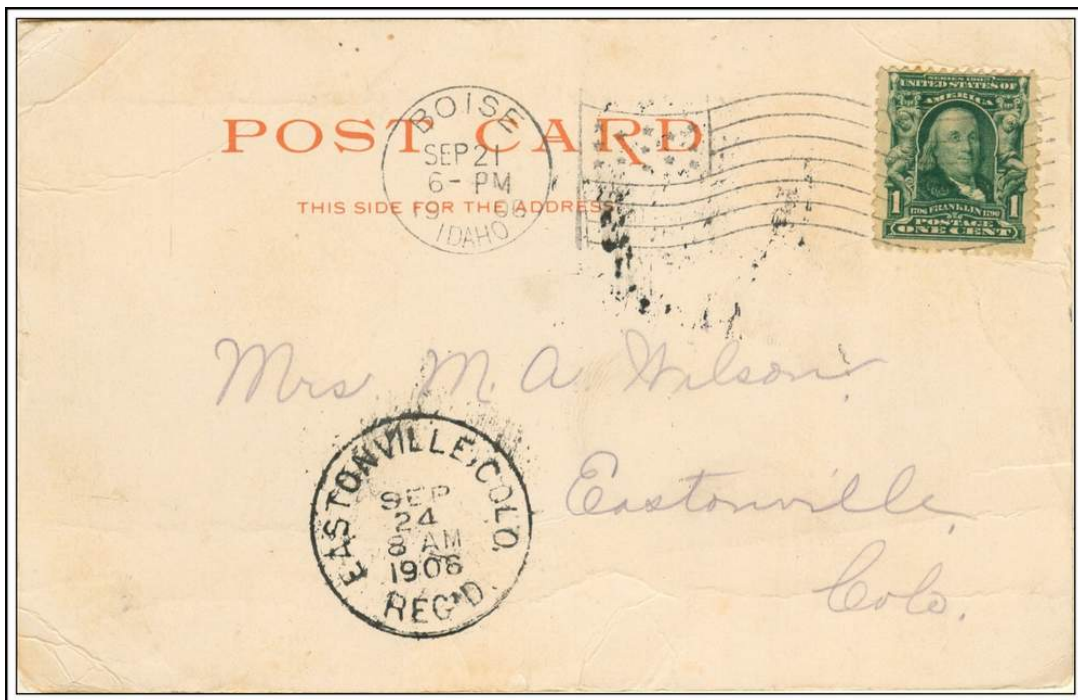 POST CARD
THIS SIDE FOR THE ADDRESS
BOISE
SEP 21
6- PM
1906
IDAHO
SERIES 1902
UNITED STATES OF
AMERICA
1 1706 FRANKLIN 1790 1
POSTAGE
ONE CENT
Mrs. M. A. Wilson.
Eastonville,
Colo.
EASTONVILLE, COLO.
SEP
24
8 AM
1906
REC'D.